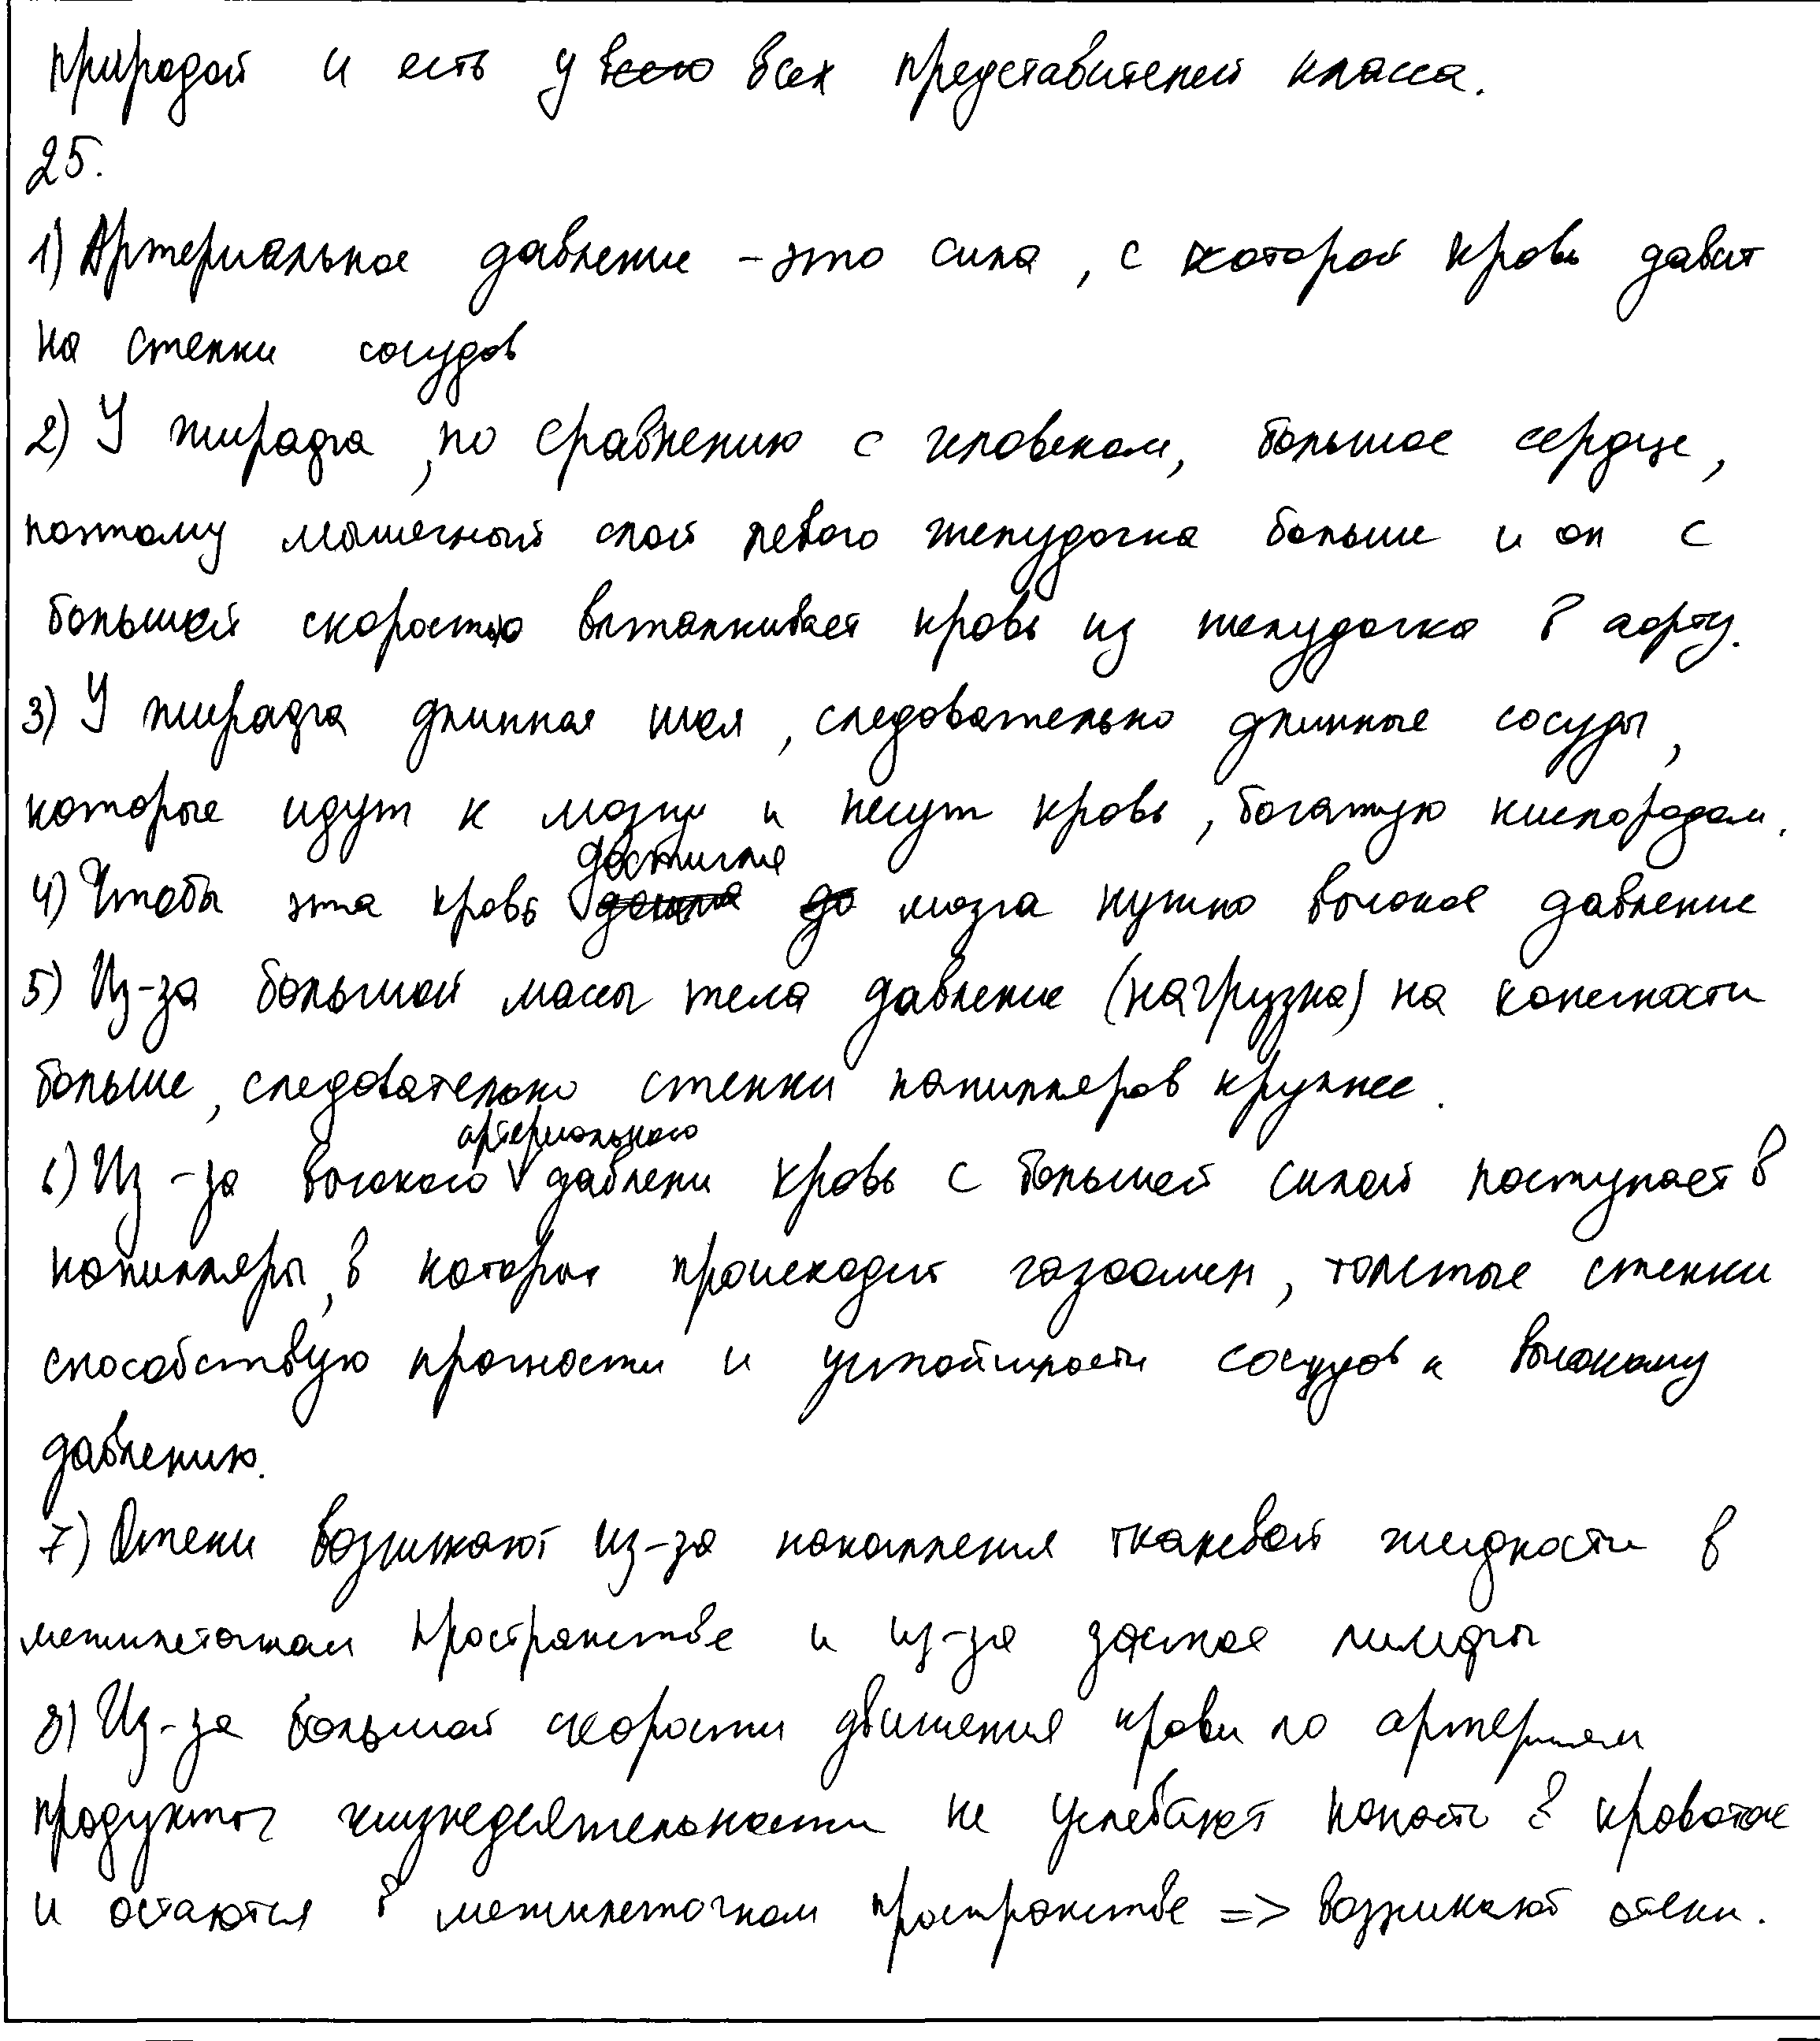 природой и есть у всего всех представителей класса.
25.
1) Артериальное давление - это сила, с которой кровь давит
на стенки сосудов
2) У жирафа, по сравнению с человеком, большое сердце,
поэтому мышечный слой левого желудочка больше и он с
большей скоростью выталкивает кровь из желудочка в аорту.
3) У жирафа длинная шея, следовательно длинные сосуды,
которые идут к мозгу и несут кровь, богатую кислородом.
достигла
4) Чтобы эта кровь дошла до мозга нужно высокое давление
5) Из-за большой массы тела давление (нагрузка) на конечности
больше, следовательно стенки капилляров крупнее.
артериального
6) Из-за высокого давлени кровь с большей силой поступает в
капилляры, в которых происходит газообмен, толстые стенки
способствую прочности и устойчивости сосудов к высокому
давлению.
7) Отеки возникают из-за накопления тканевой жидкости в
межклеточном пространстве и из-за застоя лимфы
8) Из-за большой скорости движения крови по артериям
продукты жизнедеятельности не успевают попасть в кровоток
и остаются в межклеточном пространстве => возникают отеки.